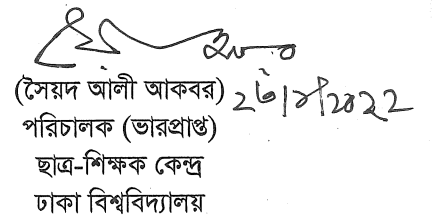 (সৈয়দ আলী আকবর)
পরিচালক (ভারপ্রাপ্ত)
ছাত্র-শিক্ষক কেন্দ্র
ঢাকা বিশ্ববিদ্যালয়